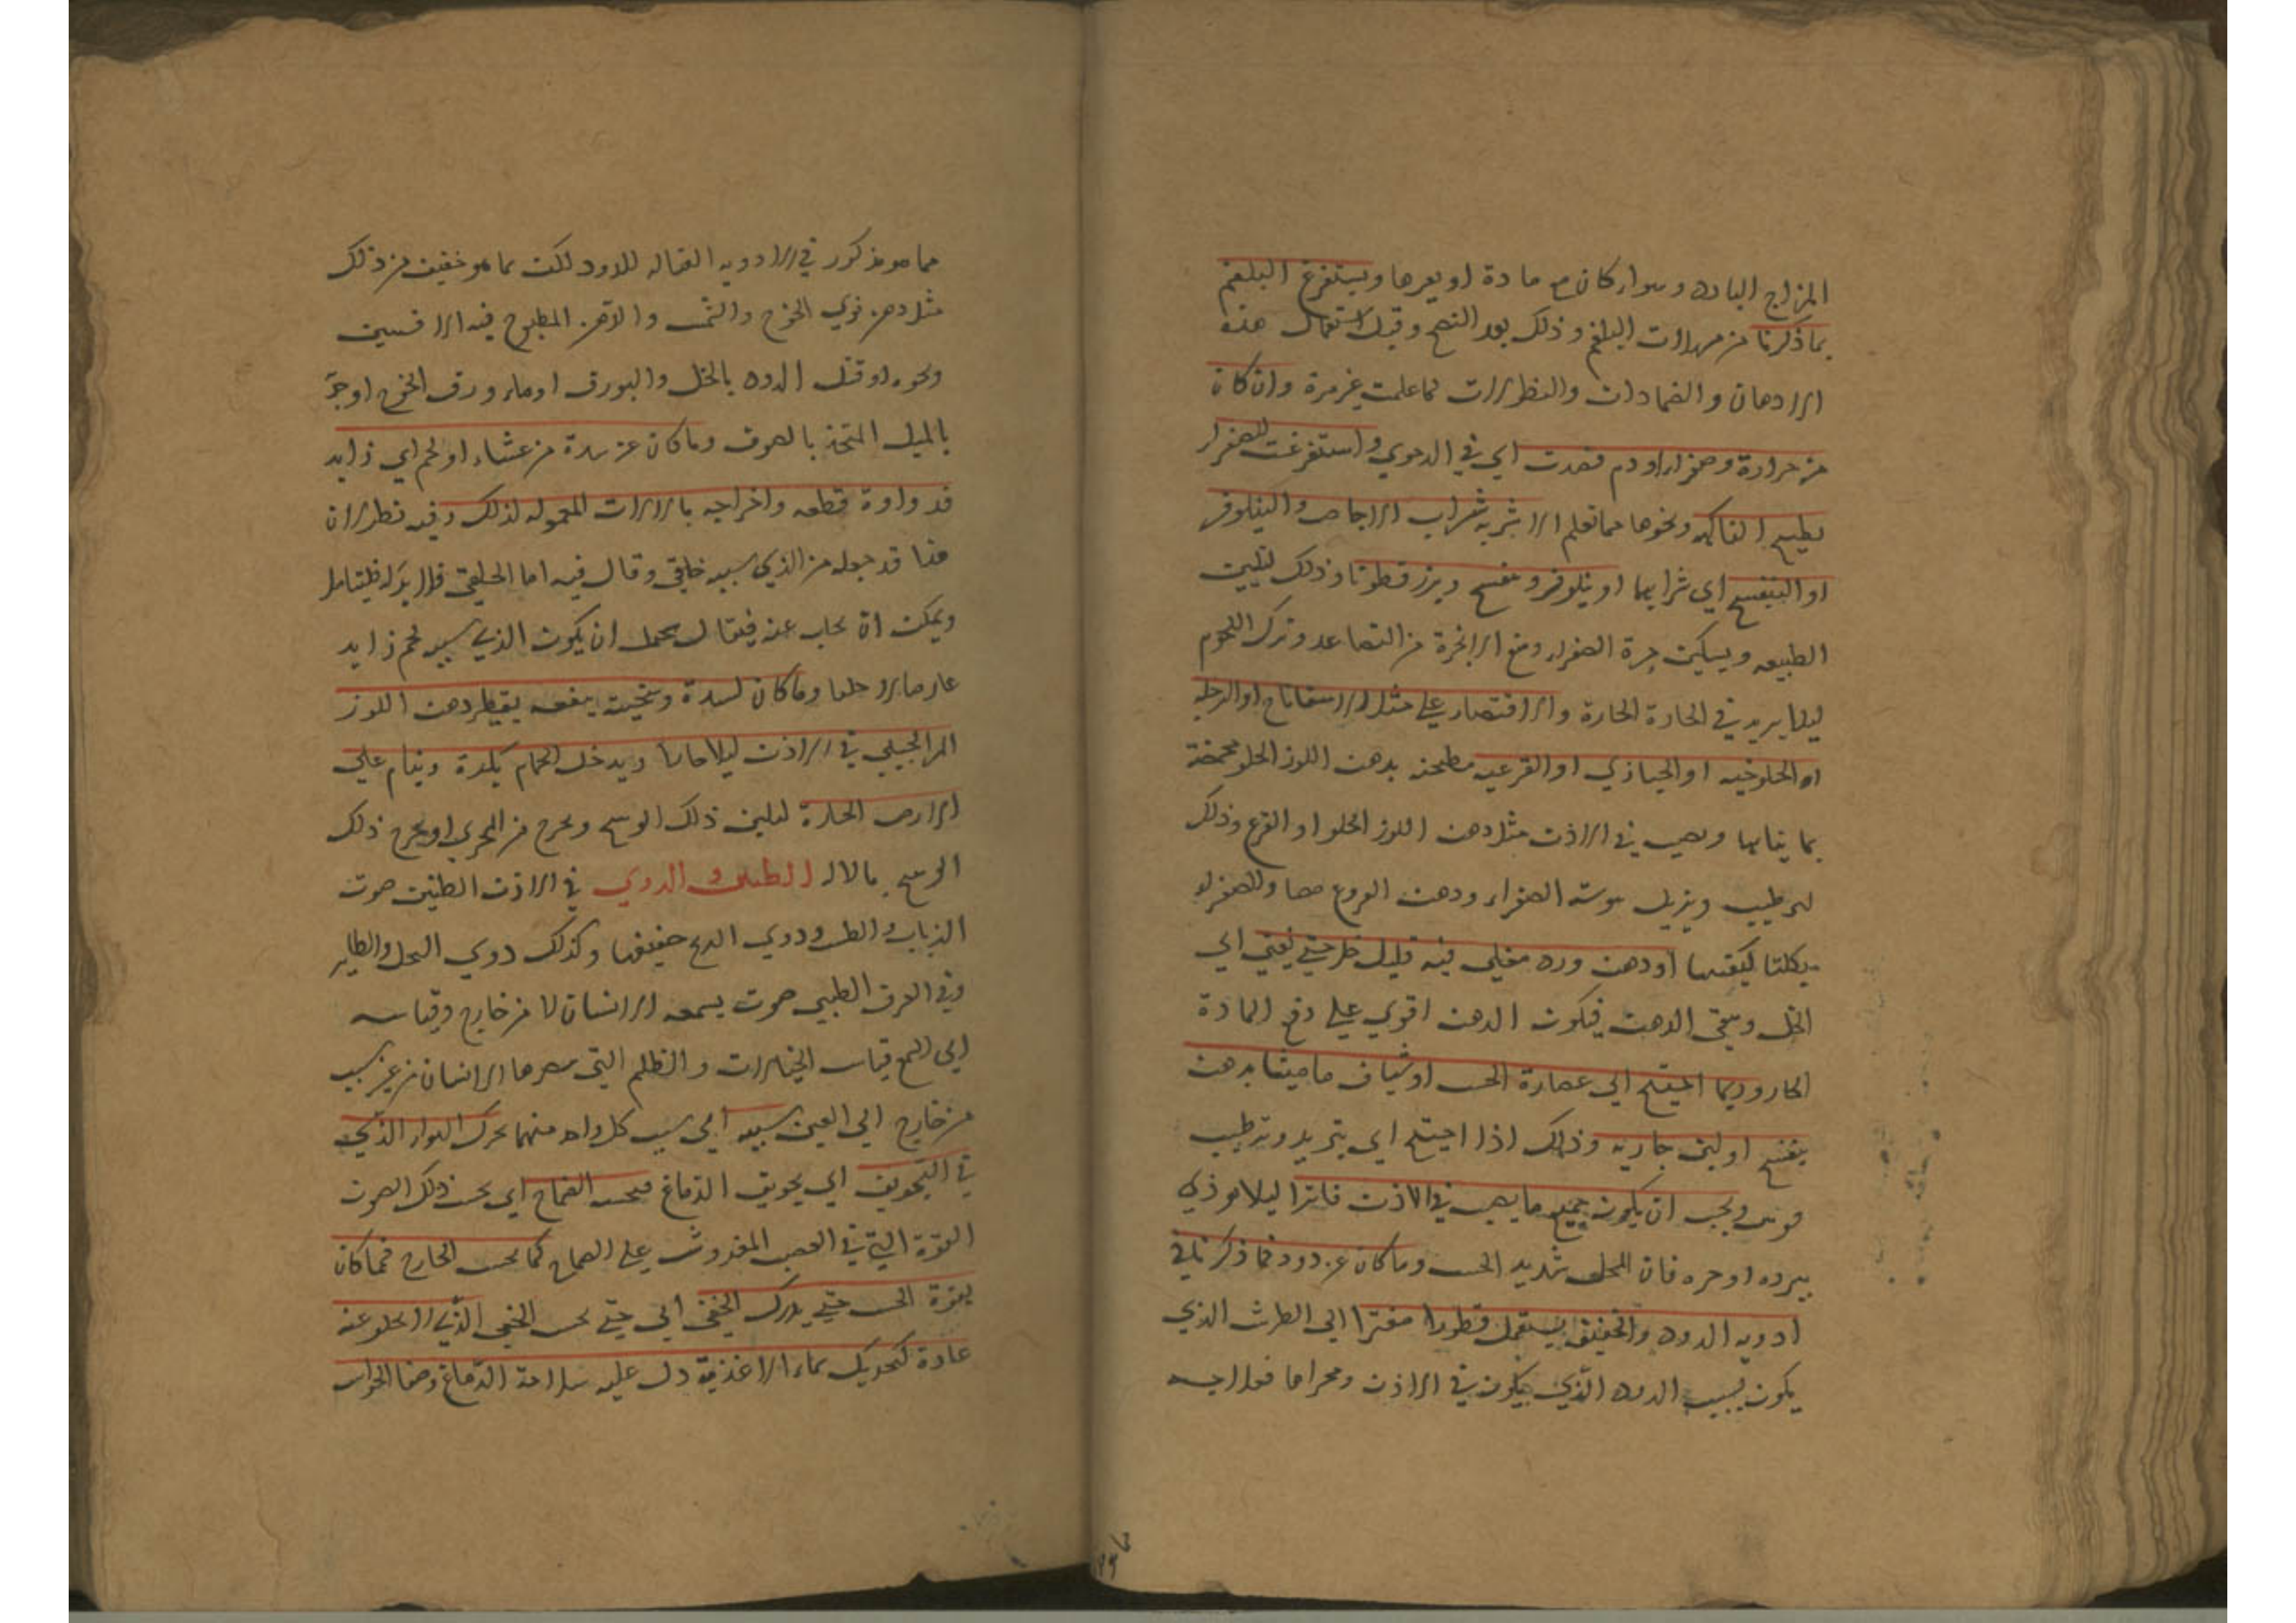 المزاج البارد وسواء كان مع مادة او بغيرها ويستفرغ البلغم
بما ذكرنا من مسهلات البلغم وذلك بعد النضج وقبل استعمال هذه
الادهان والضمادات والنطولات لما علمت غير مرة وان كان
من حرارة وصفراء او دم فصدت اي في الدموي واستفرغت الصفراء
بطبيخ الفاكهه ونحوها مما تعلم الاشربه شراب الاجاص والنيلوفر
او البنفسج اي شرابهما او نيلوفر وبنفسج وبزر قطونا وذلك لتليين
الطبيعه ويسكن حدة الصفراء ومنع الابخرة من التصاعد وترك اللحوم
ليلا يزيد في الحادة الحارة والاقتصار علي مثل الاسفاناخ او الرجله
او الملوخيه او الخبازي او القرعيه مطجنه بدهن اللوز الحلو محمضة
بما يناسبها ويصب في الاذن مثل دهن اللوز الحلو او القرع وذلك
لترطيب ويزيل يبوسة الصفراء ودهن القرع
او دهن ورد مغلي فيه قليل خل حتي يفني اي
الخل ويبقي الدهن فيكون الدهن اقوي علي دفع المادة
الحاره وربما احتيج الي عصارة الخس او شياف ماميثا بدهن
بنفسج او لبن جاريه وذلك اذا احتيج الي تبريد وترطيب
قوي ويجب ان يكون جميع ما يصب في الاذن فاترا ليلا يوذي
ببرده او حره فان المحل شديد الحس وما كان عن دود فما ذكرناه في
ادويه الدود والخفيف يستعمل قطورا مفترا الي الطرش الذي
يكون بسبب الدود الذي يكون في الاذن ومجراها فعلاجه
مما هو مذكور في الادويه القتاله للدود لكن بما هو خفيف من ذلك
مثل دهن نوي الخوخ والمشمش والدهن المطبوخ فيه الافسنتين
ونحوه او قتل الدود بالخل والبورق او ماء ورق الخوخ او جر
بالميل المتخذ بالصوف وما كان عن سدة من غشاء او لحم اي زايد
فدواوة قطعه واخراجه بالالات المعموله لذلك وفيه نظر لان
هذا قد جعله من الذي سببه خلقي وقال فيه اما الخلقي فلا يبرا فليتامل
ويمكن ان يجاب عنه فيقال يحمل ان يكون الذي سببه لحم زايد
عارضا لا خلقيا وما كان لسدة وسخية ينفعه يقطر دهن اللوز
المر الجبلي في الاذن ليلا ويدخل الحمام بكرة وينام علي
الارض الحارة ليلين ذلك الوسخ ويخرج من المجري او يخرج ذلك
الوسخ بالاله الطنين والدوي في الاذن الطنين صوت
الذباب والطست ودوي الريح حفيفها وكذلك دوي النحل والطاير
وفي العرف الطبي صوت يسمعه الانسان لا من خارج وقياسه
الي السمع قياس الخيالات والظلم التي يبصرها الانسان من غير سبب
من خارج الي العين سببه اي سبب كل واحد منهما تحرك الهواء الذي
في التجويف اي تجويف الدماغ فيحس الصماخ اي يحس ذلك الصوت
القوة التي في العصب المفروش علي الصماخ كما يحس الخارج فما كان
بقوة الحس حتي يدرك الخفي اي حتي يحس الخفي الذي لا يخلو عنه
عادة كتحريك بخار الاغذية دل عليه سلامة الدماغ وصفا الحواس